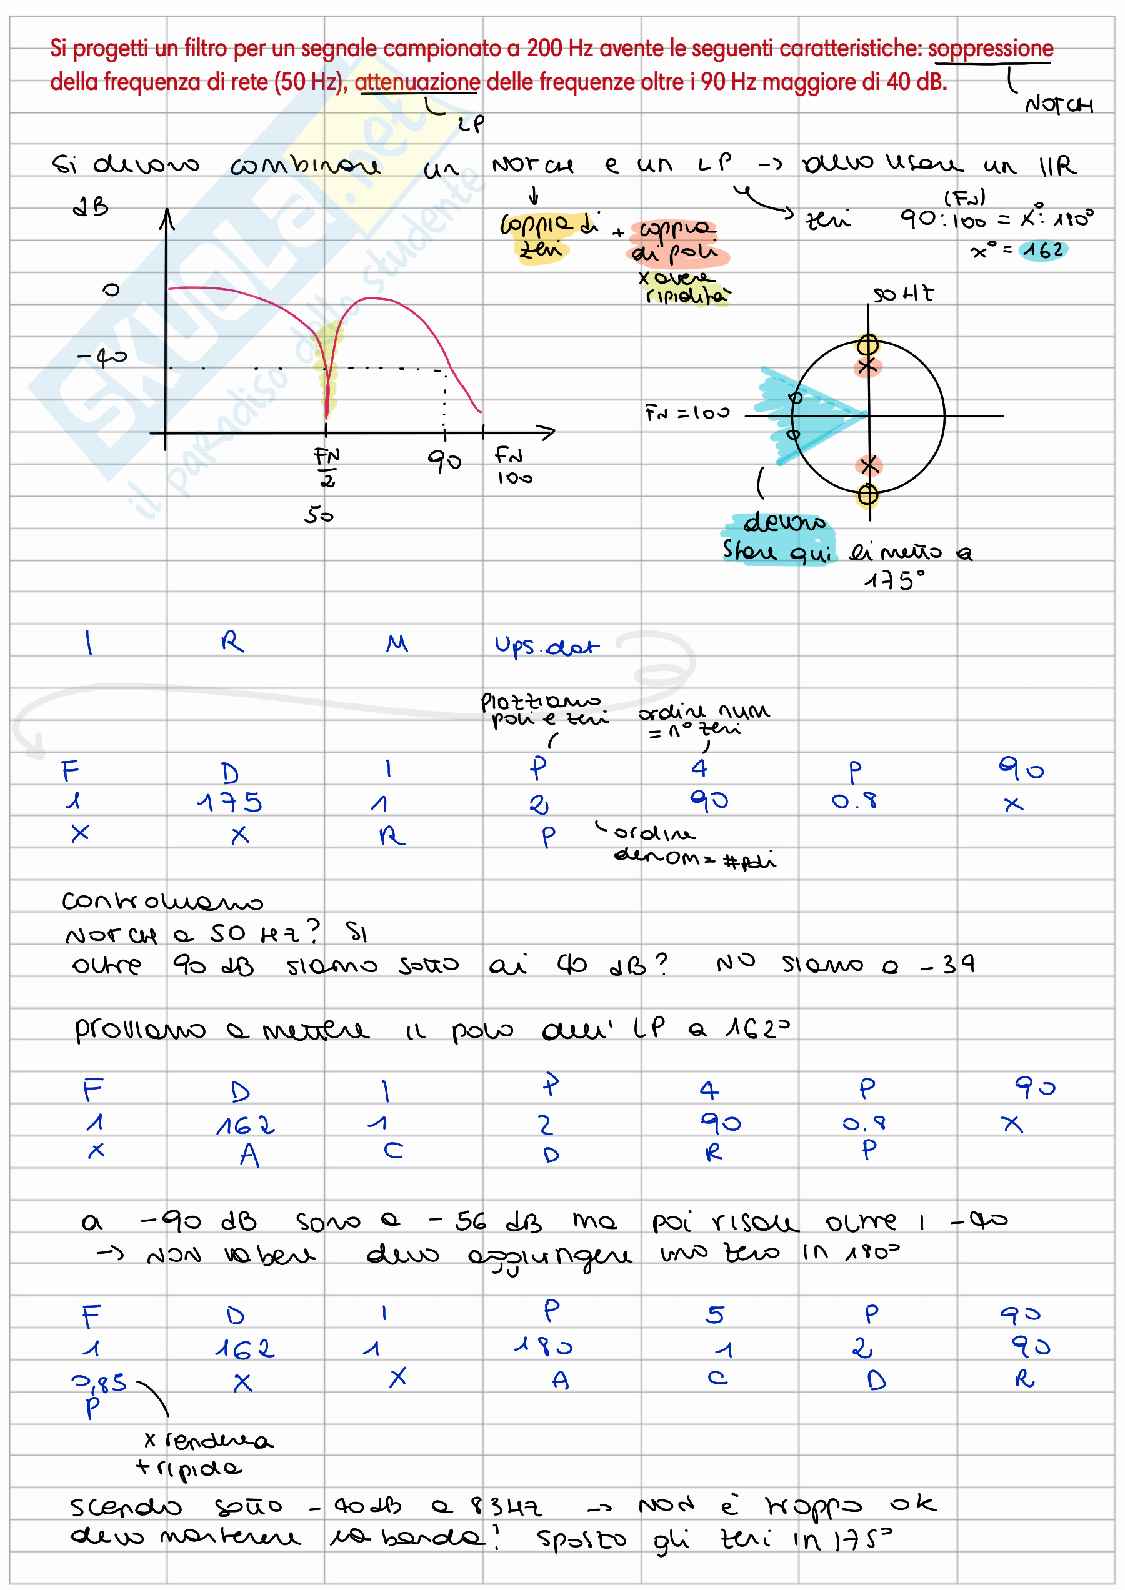 Si progetti un filtro per un segnale campionato a 200 Hz avente le seguenti caratteristiche: soppressione
della frequenza di rete (50 Hz), attenuazione delle frequenze oltre i 90 Hz maggiore di 40 dB.
NOTCH
LP
Si devono combinare un NOTCH e un LP → devo usare un IIR
dB
coppia di zeri + coppia di poli
x avere ripidità
zeri 90:100 = x°:180°
(FN)
x° = 162
0
-40
FN/2
50
90
FN
100
50 Hz
FN = 100
devono
stare qui li metto a
175°
SKUOLA.net
il paradiso dello studente
I R M Ups.dat
Plottiamo
poli e zeri
ordine num
= n° zeri
F D I P 4 P 90
1 175 1 2 90 0.8 X
X X R P
ordine
denom = #poli
Controlliamo
NOTCH a 50 Hz? SI
oltre 90 dB siamo sotto ai 40 dB? NO siamo a -39
proviamo a mettere il polo dell' LP a 162°
F D I P 4 P 90
1 162 1 2 90 0.8 X
X A C D R P
a -90 dB sono a -56 dB ma poi risale oltre i -40
→ NON va bene devo aggiungere uno zero in 180°
F D I P 5 P 90
1 162 1 180 1 2 90
0,85 X X A C D R
P
x renderla
+ ripida
scendo sotto -40dB a 83Hz → NON è troppo ok
devo mantenere la banda! sposto gli zeri in 175°